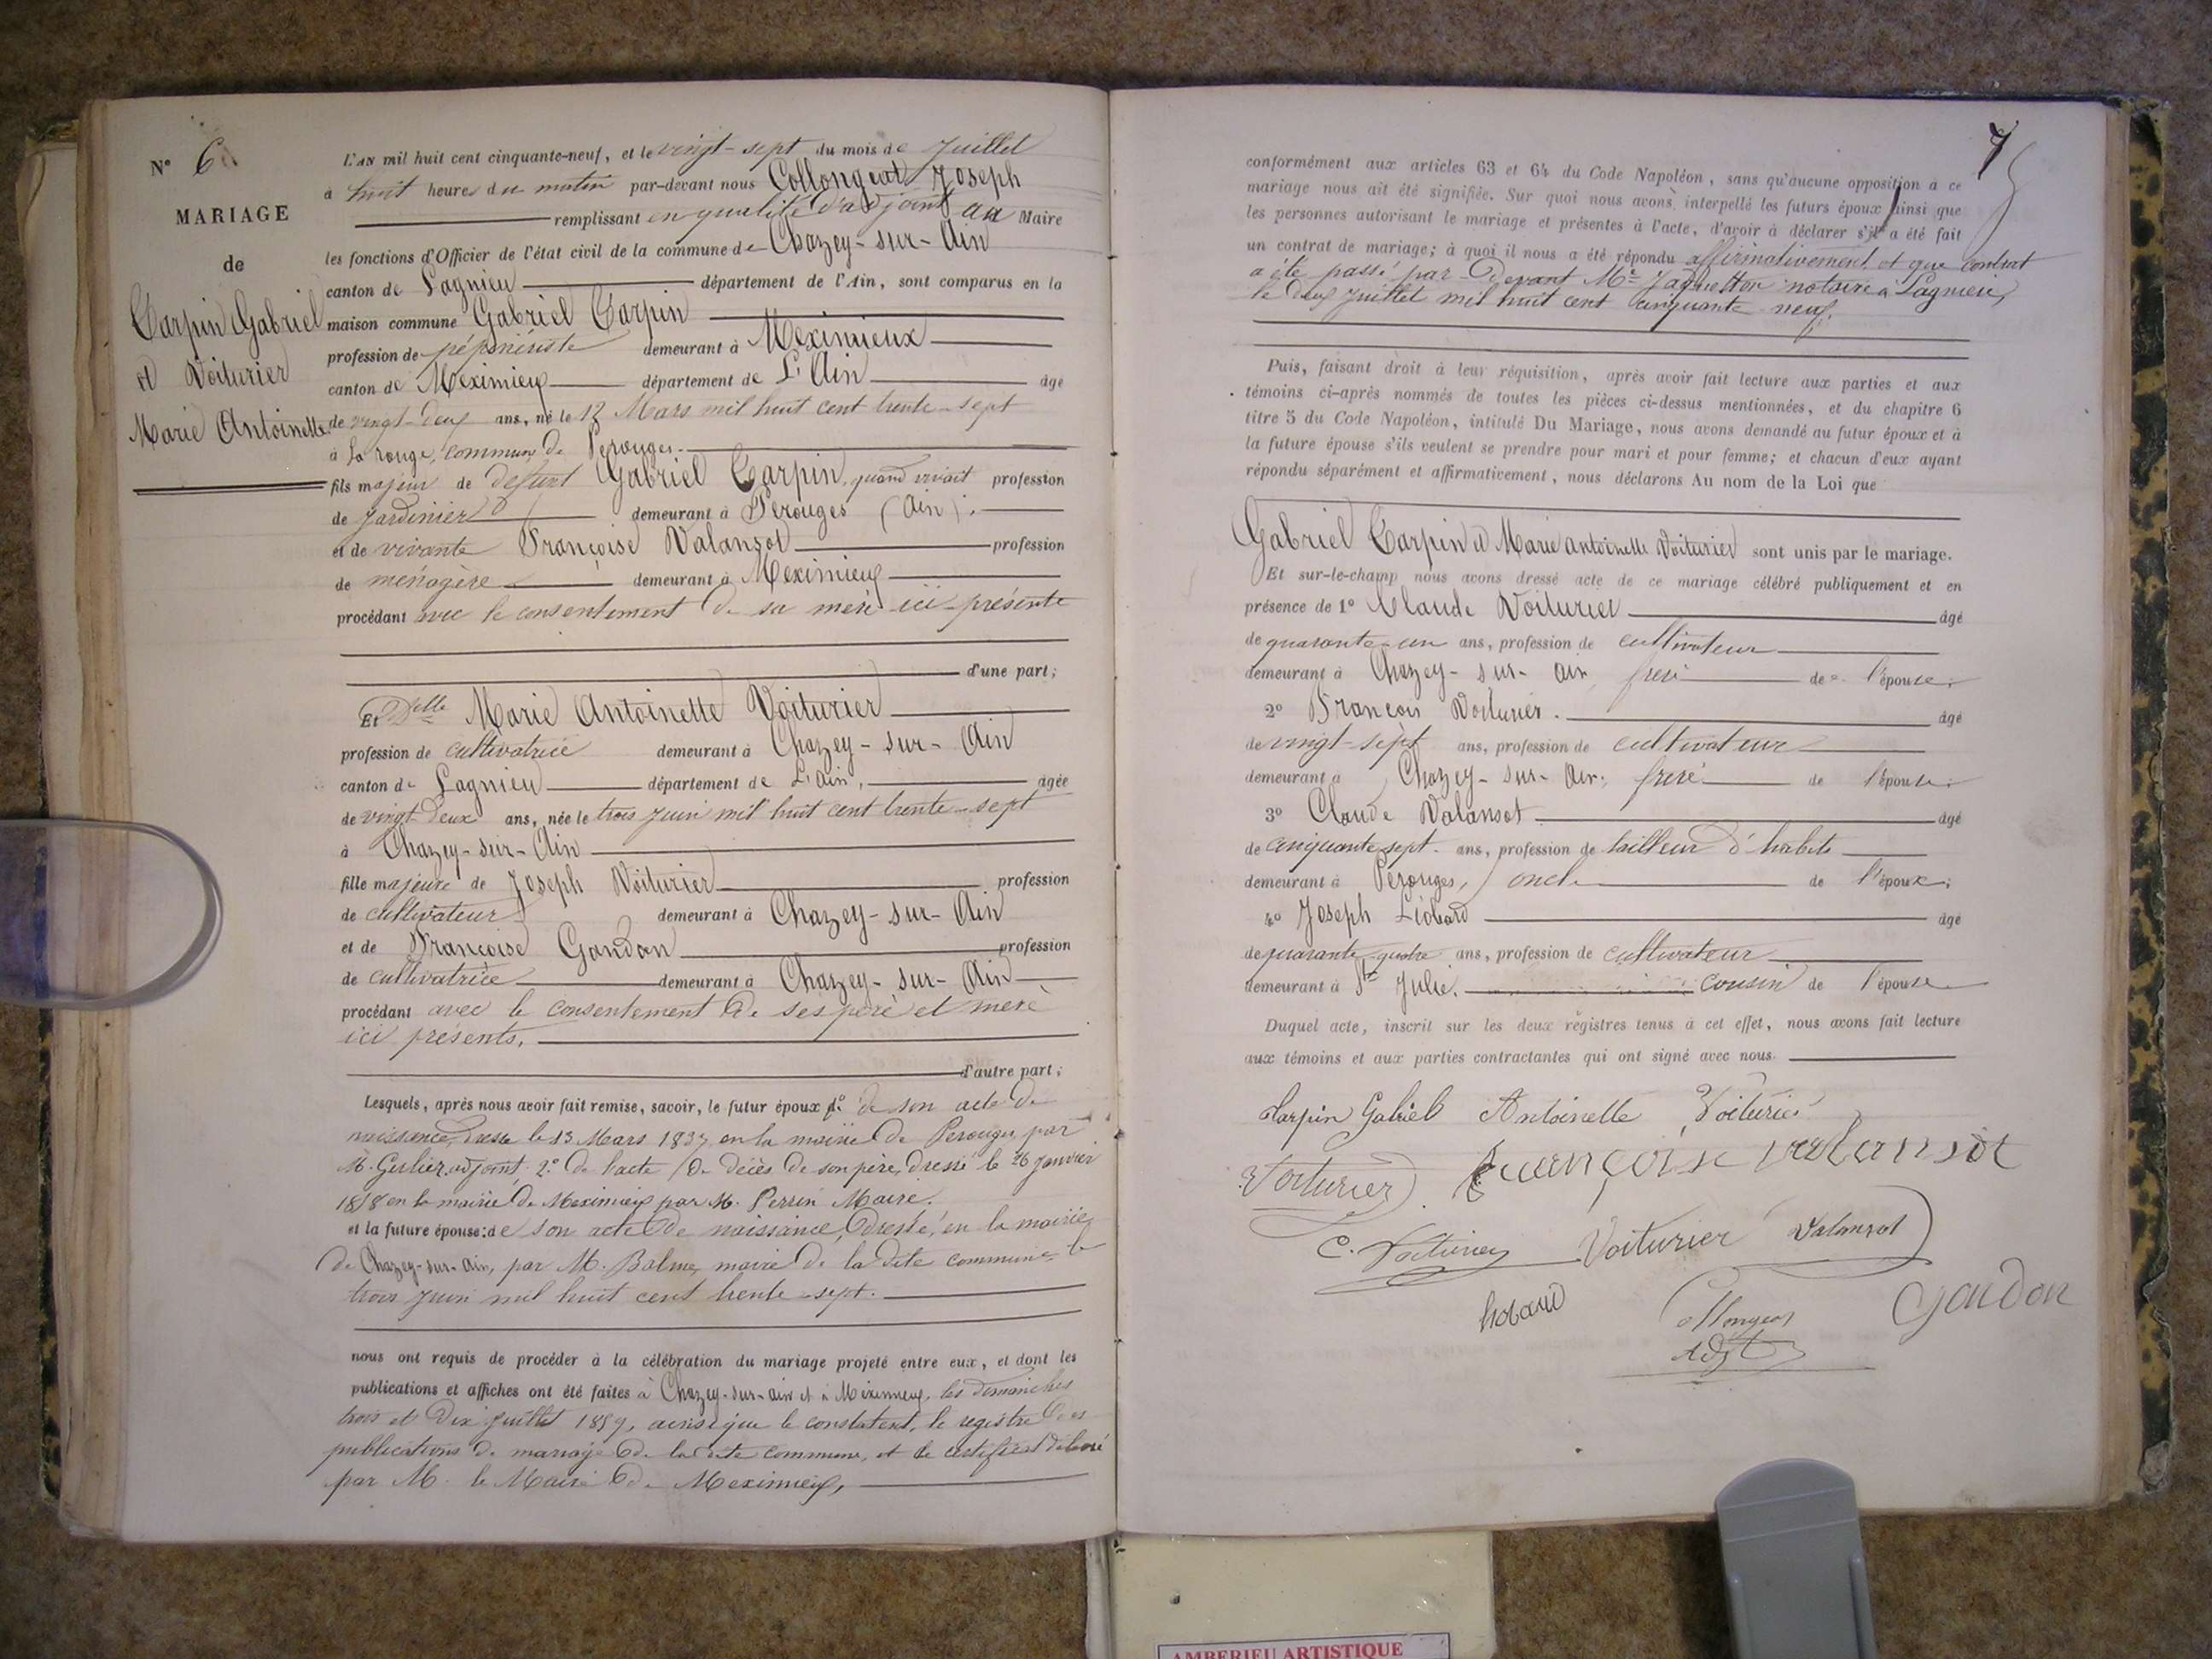 N° 6
MARIAGE
de
Carpin Gabriel
et Voiturier
Marie Antoinette
L'AN mil huit cent cinquante-neuf, et le vingt-sept du mois de Juillet
à huit heures du matin par-devant nous Collongeat Joseph
remplissant en qualité d'adjoint au Maire
les fonctions d'Officier de l'état civil de la commune de Chazey-sur-Ain
canton de Lagnieu département de l'Ain, sont comparus en la
maison commune Gabriel Carpin
profession de pépiniériste demeurant à Meximieux
canton de Meximieux département de L'Ain âgé
de vingt-deux ans, né le 13 Mars mil huit cent trente-sept
à la rouge, commune de Perouges.
fils majeur de défunt Gabriel Carpin, quand vivait profession
de jardinier demeurant à Perouges (Ain).
et de vivante Françoise Valansot profession
de ménagère demeurant à Meximieux
procédant avec le consentement de sa mère ici présente
d'une part;
Et Delle Marie Antoinette Voiturier
profession de cultivatrice demeurant à Chazey-sur-Ain
canton de Lagnieu département de L'ain, âgée
de vingt deux ans, née le trois juin mil huit cent trente-sept
à Chazey-sur-Ain
fille majeure de Joseph Voiturier profession
de cultivateur demeurant à Chazey-sur-Ain
et de Françoise Gandon profession
de cultivatrice demeurant à Chazey-sur-Ain
procédant avec le consentement de ses père et mère
ici présents.
d'autre part;
Lesquels, après nous avoir fait remise, savoir, le futur époux 1° de son acte de
naissance, dressé le 13 Mars 1837 en la mairie de Perouges, par
M. adjoint, 2° de l'acte de décès de son père, dressé le 26 janvier
en la mairie de Meximieux par M. Perrin Maire.
et la future épouse: de son acte de naissance, dressé, en la mairie
de Chazey-sur-Ain, par M. Balme, maire de la dite commune le
trois juin mil huit cent trente-sept.
nous ont requis de procéder à la célébration du mariage projeté entre eux, et dont les
publications et affiches ont été faites à Chazey-sur-ain et à Meximieux, les dimanches
trois et dix juillet 1859, ainsi que le constatent, le registre des
publications de mariage de la dite commune, et le certificat délivré
par M. le Maire de Meximieux,
7
conformément aux articles 63 et 64 du Code Napoléon, sans qu'aucune opposition à ce
mariage nous ait été signifiée. Sur quoi nous avons interpellé les futurs époux ainsi que
les personnes autorisant le mariage et présentes à l'acte, d'avoir à déclarer s'il a été fait
un contrat de mariage; à quoi il nous a été répondu affirmativement, et que contrat
a été passé par-devant Me Jaquetton notaire à Lagnieu,
le deux juillet mil huit cent cinquante neuf.
Puis, faisant droit à leur réquisition, après avoir fait lecture aux parties et aux
témoins ci-après nommés de toutes les pièces ci-dessus mentionnées, et du chapitre 6
titre 5 du Code Napoléon, intitulé Du Mariage, nous avons demandé au futur époux et à
la future épouse s'ils veulent se prendre pour mari et pour femme; et chacun d'eux ayant
répondu séparément et affirmativement, nous déclarons Au nom de la Loi que
Gabriel Carpin et Marie antoinette Voiturier sont unis par le mariage.
Et sur-le-champ nous avons dressé acte de ce mariage célébré publiquement et en
présence de 1° Claude Voiturier âgé
de quarante-un ans, profession de cultivateur
demeurant à Chazey-sur-ain frère de l'épouse.
2° François Voiturier. âgé
de vingt-sept ans, profession de cultivateur
demeurant à Chazey-sur-Ain, frère de l'épouse.
3° Claude Valansot âgé
de cinquante sept. ans, profession de tailleur d'habits
demeurant à Perouges, oncle de l'époux,
4° Joseph Liobard âgé
de quarante-quatre ans, profession de cultivateur
demeurant à Ste Julie. cousin de l'épouse
Duquel acte, inscrit sur les deux registres tenus à cet effet, nous avons fait lecture
aux témoins et aux parties contractantes qui ont signé avec nous.
Carpin Gabriel Antoinette Voiturier
Voiturier Françoise valansot
C. Voiturier Voiturier Valansot
liobard Collongeat Gandon
Adjt
AMBERIEU ARTISTIQUE